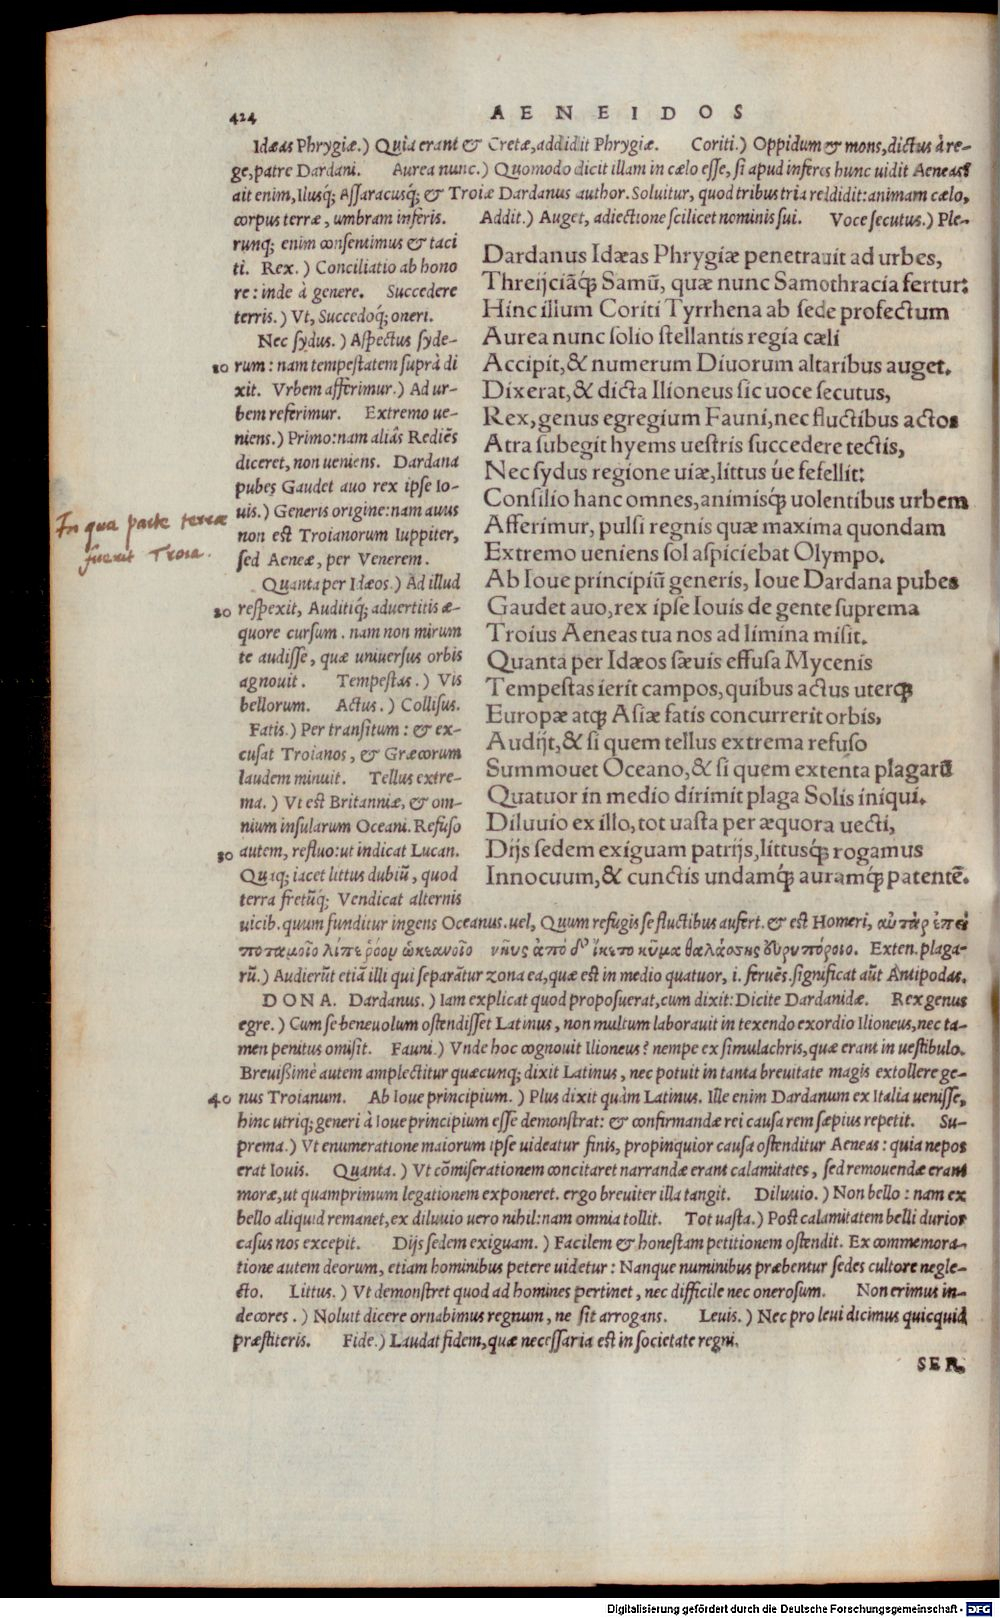 424 AENEIDOS
Idæas Phrygiæ.) Quia erant & Cretæ, addidit Phrygiæ. Coriti.) Oppidum & mons, dictus à re-
ge, patre Dardani. Aurea nunc.) Quomodo dicit illam in cælo esse, si apud inferos hunc uidit Aeneas?
ait enim, Ilusq́; Assaracusq́; & Troiæ Dardanus author. Soluitur, quod tribus tria reddidit: animam cælo,
corpus terræ, umbram inferis. Addit.) Auget, adiectione scilicet nominis sui. Voce secutus.) Ple-
runq; enim consentimus & taci
ti. Rex.) Conciliatio ab hono
re: inde à genere. Succedere
terris.) Vt, Succedoq́; oneri.
Nec sydus.) Aspectus syde-
10 rum: nam tempestatem suprà di
xit. Vrbem afferimur.) Ad ur-
bem referimur. Extremo ue-
niens.) Primo: nam aliâs Rediẽs
diceret, non ueniens. Dardana
pubes Gaudet auo rex ipse Io-
uis.) Generis origine: nam auus
non est Troianorum Iuppiter,
sed Aeneæ, per Venerem.
Quanta per Idæos.) Ad illud
20 respexit, Auditiq́; aduertitis æ-
quore cursum. nam non mirum
te audisse, quæ uniuersus orbis
agnouit. Tempestas.) Vis
bellorum. Actus.) Collisus.
Fatis.) Per transitum: & ex-
cusat Troianos, & Græcorum
laudem minuit. Tellus extre-
ma.) Vt est Britanniæ, & om-
nium insularum Oceani. Refuso
30 autem, refluo: ut indicat Lucan.
Quaq; iacet littus dubiũ, quod
terra fretũq́; Vendicat alternis
Dardanus Idæas Phrygiæ penetrauit ad urbes,
Threijciãq́; Samũ, quæ nunc Samothracia fertur:
Hinc illum Coriti Tyrrhena ab sede profectum
Aurea nunc solio stellantis regia cæli
Accipit, & numerum Diuorum altaribus auget.
Dixerat, & dicta Ilioneus sic uoce secutus,
Rex, genus egregium Fauni, nec fluctibus actos
Atra subegit hyems uestris succedere tectis,
Nec sydus regione uiæ, littus úe fefellit:
Consilio hanc omnes, animisq́; uolentibus urbem
Afferimur, pulsi regnis quæ maxima quondam
Extremo ueniens sol aspiciebat Olympo.
Ab Ioue principiũ generis, Ioue Dardana pubes
Gaudet auo, rex ipse Iouis de gente suprema
Troius Aeneas tua nos ad limina misit.
Quanta per Idæos sæuis effusa Mycenis
Tempestas ierit campos, quibus actus uterq;
Europæ atq; Asiæ fatis concurrerit orbis,
Audijt, & si quem tellus extrema refuso
Summouet Oceano, & si quem extenta plagarũ
Quatuor in medio dirimit plaga Solis iniqui.
Diluuio ex illo, tot uasta per æquora uecti,
Dijs sedem exiguam patrijs, littusq́; rogamus
Innocuum, & cunctis undamq́; auramq́; patentẽ.
In qua parte terræ
fuerit Troia.
uicib. quum funditur ingens Oceanus. uel, Quum refugis se fluctibus aufert. & est Homeri, αὐτὰρ ἐπεὶ
ποταμοῖο λίπε ῥόον ὠκεανοῖο νηῦς ἀπό δ' ἵκετο κῦμα θαλάσσης εὐρυπόροιο. Exten. plaga-
rũ.) Audierũt etiã illi qui separãtur zona ea, quæ est in medio quatuor, i. feruẽs. significat aũt Antipodas.
DONA. Dardanus.) Iam explicat quod proposuerat, cum dixit: Dicite Dardanidæ. Rex genus
egre.) Cum se beneuolum ostendisset Latinus, non multum laborauit in texendo exordio Ilioneus, nec ta-
men penitus omisit. Fauni.) Vnde hoc cognouit Ilioneus? nempe ex simulachris, quæ erant in uestibulo.
Breuißimè autem amplectitur quæcunq; dixit Latinus, nec potuit in tanta breuitate magis extollere ge-
40 nus Troianum. Ab Ioue principium.) Plus dixit quàm Latinus. Ille enim Dardanum ex Italia uenisse,
hinc utriq; generi à Ioue principium esse demonstrat: & confirmandæ rei causa rem sæpius repetit. Su-
prema.) Vt enumeratione maiorum ipse uideatur finis, propinquior causa ostenditur Aeneas: quia nepos
erat Iouis. Quanta.) Vt cõmiserationem concitaret narrandæ erant calamitates, sed remouendæ erant
moræ, ut quamprimum legationem exponeret. ergo breuiter illa tangit. Diluuio.) Non bello: nam ex
bello aliquid remanet, ex diluuio uero nihil: nam omnia tollit. Tot uasta.) Post calamitatem belli durior
casus nos excepit. Dijs sedem exiguam.) Facilem & honestam petitionem ostendit. Ex commemora-
tione autem deorum, etiam hominibus petere uidetur: Nanque numinibus præbentur sedes cultore negle-
cto. Littus.) Vt demonstret quod ad homines pertinet, nec difficile nec onerosum. Non erimus in-
decores.) Noluit dicere ornabimus regnum, ne sit arrogans. Leuis.) Nec pro leui dicimus quicquid
præstiteris. Fide.) Laudat fidem, quæ necessaria est in societate regni.
SER.
Digitalisierung gefördert durch die Deutsche Forschungsgemeinschaft - DFG